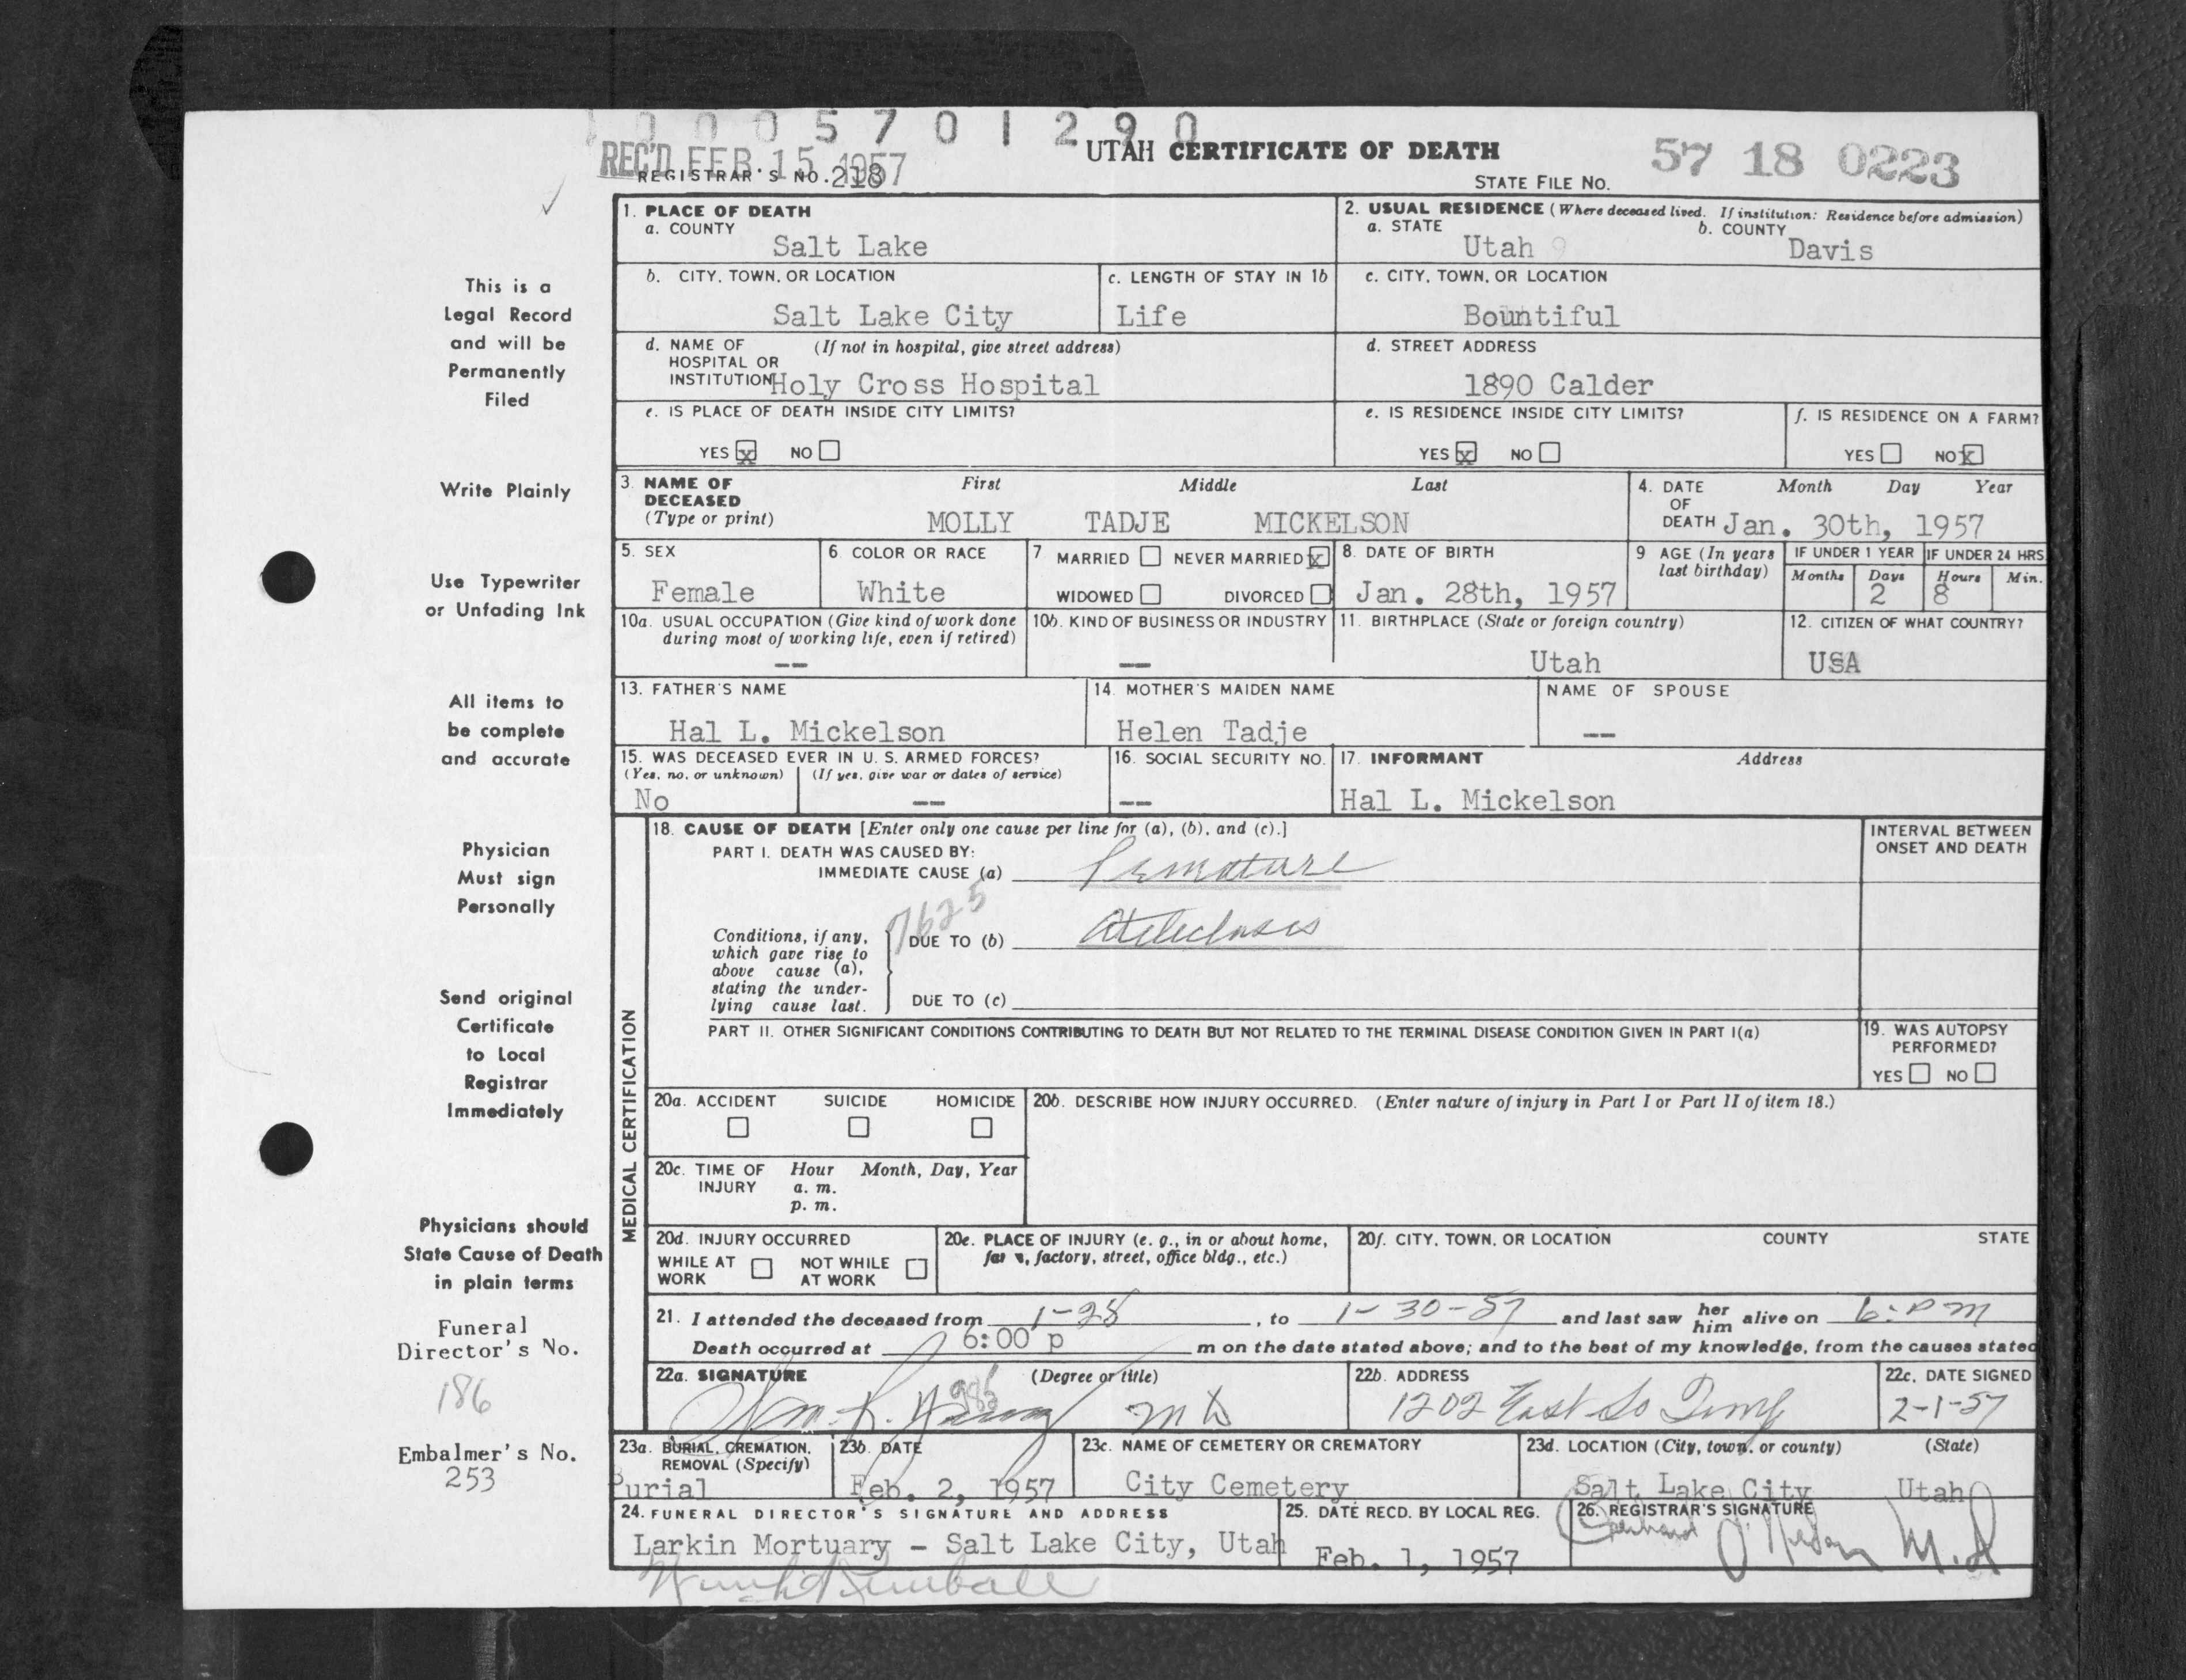 1 0 0 0 5 7 0 1 2 9 0
REC'D FEB 15 1957
REGISTRAR'S NO. 218
UTAH CERTIFICATE OF DEATH
STATE FILE NO. 57 18 0223
This is a
Legal Record
and will be
Permanently
Filed
Write Plainly
Use Typewriter
or Unfading Ink
All items to
be complete
and accurate
Physician
Must sign
Personally
Send original
Certificate
to Local
Registrar
Immediately
Physicians should
State Cause of Death
in plain terms
Funeral
Director's No.
186
Embalmer's No.
253
1. PLACE OF DEATH
a. COUNTY
Salt Lake
2. USUAL RESIDENCE (Where deceased lived. If institution: Residence before admission)
a. STATE b. COUNTY
Utah 9 Davis
b. CITY, TOWN, OR LOCATION
Salt Lake City
c. LENGTH OF STAY IN 1b
Life
c. CITY, TOWN, OR LOCATION
Bountiful
d. NAME OF (If not in hospital, give street address)
HOSPITAL OR
INSTITUTION Holy Cross Hospital
d. STREET ADDRESS
1890 Calder
e. IS PLACE OF DEATH INSIDE CITY LIMITS?
YES x NO
e. IS RESIDENCE INSIDE CITY LIMITS?
YES x NO
f. IS RESIDENCE ON A FARM?
YES NO x
3. NAME OF First Middle Last
DECEASED
(Type or print) MOLLY TADJE MICKELSON
4. DATE Month Day Year
OF
DEATH Jan. 30th, 1957
5. SEX
Female
6. COLOR OR RACE
White
7. MARRIED NEVER MARRIED x
WIDOWED DIVORCED
8. DATE OF BIRTH
Jan. 28th, 1957
9 AGE (In years
last birthday)
IF UNDER 1 YEAR IF UNDER 24 HRS
Months Days Hours Min.
2 8
10a. USUAL OCCUPATION (Give kind of work done
during most of working life, even if retired)
--
10b. KIND OF BUSINESS OR INDUSTRY
--
11. BIRTHPLACE (State or foreign country)
Utah
12. CITIZEN OF WHAT COUNTRY?
USA
13. FATHER'S NAME
Hal L. Mickelson
14. MOTHER'S MAIDEN NAME
Helen Tadje
NAME OF SPOUSE
--
15. WAS DECEASED EVER IN U. S. ARMED FORCES?
(Yes, no, or unknown) (If yes, give war or dates of service)
No --
16. SOCIAL SECURITY NO.
--
17. INFORMANT Address
Hal L. Mickelson
MEDICAL CERTIFICATION
18. CAUSE OF DEATH [Enter only one cause per line for (a), (b), and (c).]
PART I. DEATH WAS CAUSED BY:
IMMEDIATE CAUSE (a) Premature
INTERVAL BETWEEN
ONSET AND DEATH
7625
Conditions, if any,
which gave rise to
above cause (a),
stating the under-
lying cause last.
DUE TO (b) Atelectasis
DUE TO (c)
PART II. OTHER SIGNIFICANT CONDITIONS CONTRIBUTING TO DEATH BUT NOT RELATED TO THE TERMINAL DISEASE CONDITION GIVEN IN PART I(a)
19. WAS AUTOPSY
PERFORMED?
YES NO
20a. ACCIDENT SUICIDE HOMICIDE
20b. DESCRIBE HOW INJURY OCCURRED. (Enter nature of injury in Part I or Part II of item 18.)
20c. TIME OF Hour Month, Day, Year
INJURY a. m.
p. m.
20d. INJURY OCCURRED
WHILE AT WORK NOT WHILE AT WORK
20e. PLACE OF INJURY (e. g., in or about home,
farm, factory, street, office bldg., etc.)
20f. CITY, TOWN, OR LOCATION COUNTY STATE
21. I attended the deceased from 1-28, to 1-30-57 and last saw her him alive on 6: P m
Death occurred at 6:00 p m on the date stated above; and to the best of my knowledge, from the causes stated
22a. SIGNATURE (Degree or title)
Wm. R. MD
22b. ADDRESS
1202 East So Temp
22c. DATE SIGNED
2-1-57
23a. BURIAL, CREMATION,
REMOVAL (Specify)
Burial
23b. DATE
Feb. 2, 1957
23c. NAME OF CEMETERY OR CREMATORY
City Cemetery
23d. LOCATION (City, town, or county) (State)
Salt Lake City Utah
24. FUNERAL DIRECTOR'S SIGNATURE AND ADDRESS
Larkin Mortuary - Salt Lake City, Utah
25. DATE RECD. BY LOCAL REG.
Feb. 1, 1957
26. REGISTRAR'S SIGNATURE
M.D
Kimball